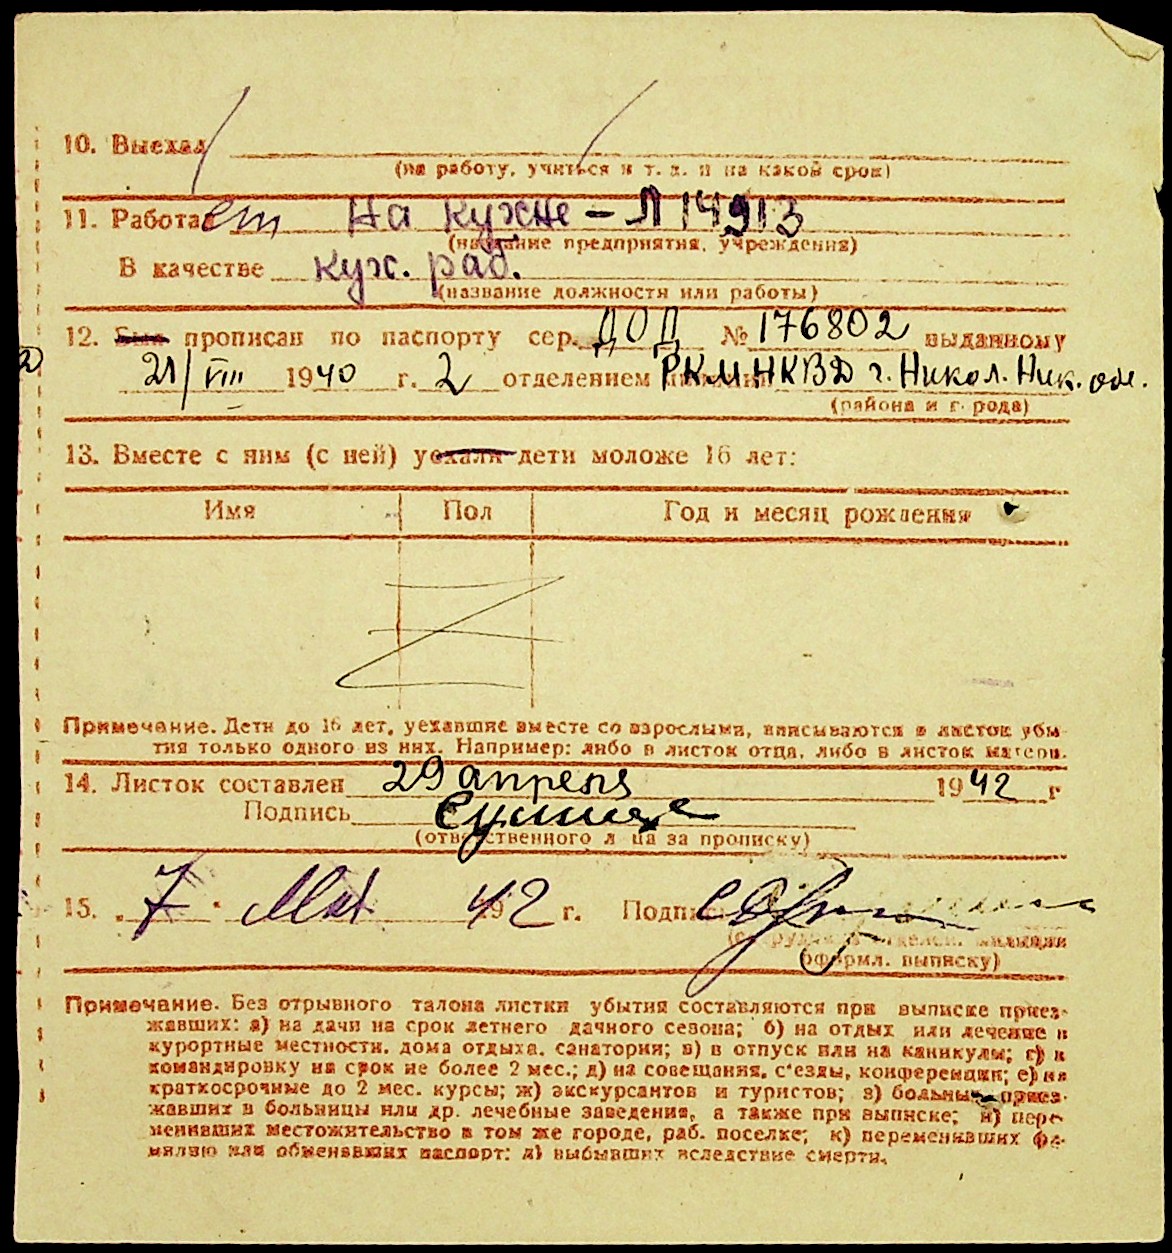 10. Выехал
(на работу, учиться и т. д. и на какой срок)
11. Работает на кухне – Л 14913
(название предприятия, учреждения)
В качестве кух. раб.
(название должности или работы)
12. Был прописан по паспорту сер. ДОД № 176802 выданному
21/VIII 1940 г. 2 отделением РКМ НКВД г. Никол. Ник. обл.
(района и города)
13. Вместе с ним (с ней) уехали дети моложе 16 лет:
Имя Пол Год и месяц рождения
Примечание. Дети до 16 лет, уехавшие вместе со взрослыми, вписываются в листок убы-
тия только одного из них. Например: либо в листок отца, либо в листок матери.
14. Листок составлен 29 апреля 1942 г
Подпись
(ответственного лица за прописку)
15. 7 Мая 1942 г. Подпись
(сотрудника отделен. милиции
оформл. выписку)
Примечание. Без отрывного талона листки убытия составляются при выписке приез-
жавших: а) на дачи на срок летнего дачного сезона; б) на отдых или лечение в
курортные местности, дома отдыха, санатория; в) в отпуск или на каникулы; г) в
командировку на срок не более 2 мес.; д) на совещания, с'езды, конференции; е) на
краткосрочные до 2 мес. курсы; ж) экскурсантов и туристов; з) больных, приез-
жавших в больницы или др. лечебные заведения, а также при выписке; и) пере-
менивших местожительство в том же городе, раб. поселке; к) переменивших фа-
милию или обменявших паспорт; л) выбывших вследствие смерти.